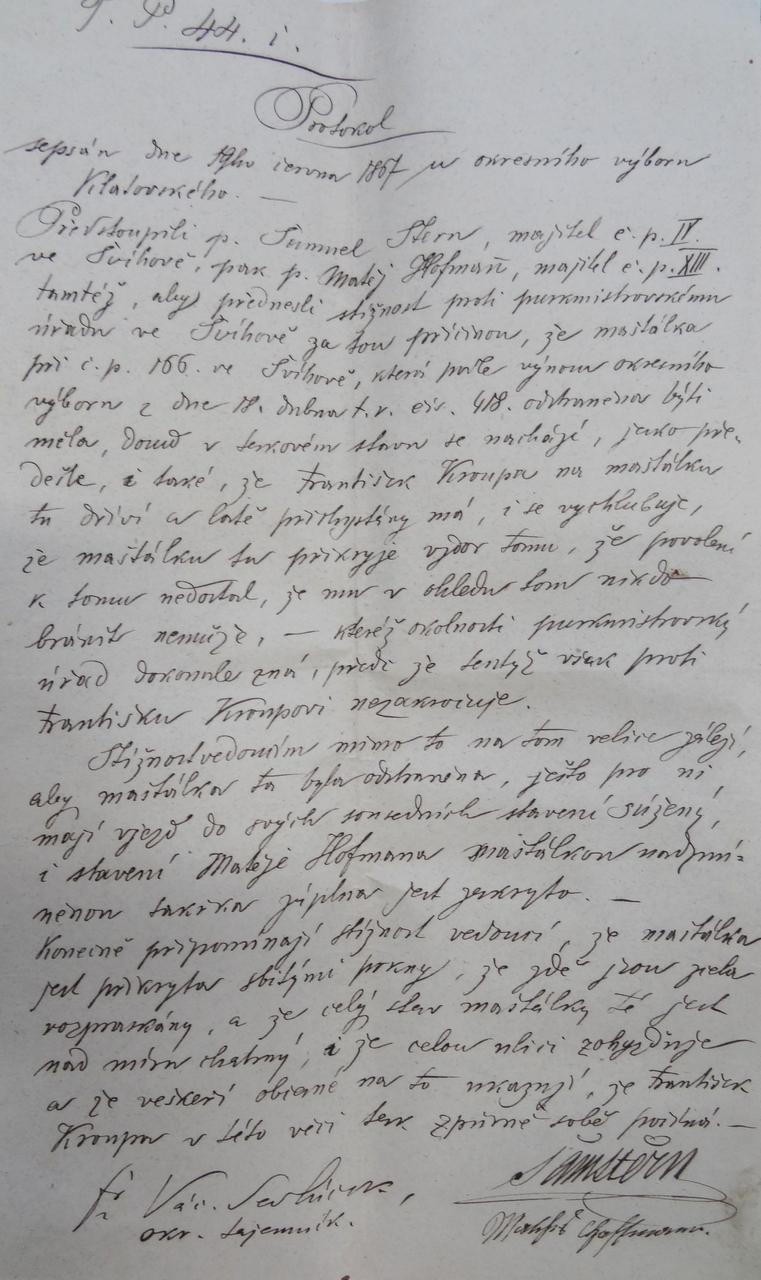 T. P. 44. i.
Protokol
sepsán dne 19ho června 1867 u okresního výboru
Klatovského. —
Předstoupili p. Samuel Stern, majitel č. p. IV.
ve Švihově, pak p. Matěj Hofmann, majitel č. p. XIII.
tamtéž, aby přednesli stížnost proti purkmistrovskému
úřadu ve Švihově za tou příčinou, že maštálka
při č. p. 166. ve Švihově, která podle výnosu okresního
výboru z dne 18. dubna t. r. čís. 418. odstraněna býti
měla, dosud v takovém stavu se nachází, jako pře-
dešle, i také, že František Kroupa na maštálku
tu dříví a latě přichystány má, i se vychlubuje,
že maštálku tu přikryje vzdor tomu, že povolení
k tomu nedostal, že mu v ohledu tom nikdo
brániti nemůže, — kteréž okolnosti purkmistrovský
úřad dokonale zná, proti Františku
Františku Kroupovi nezakročuje.
Stížnost vedoucím mimo to na tom velice záleží,
aby maštálka ta byla odstraněna, ješto pro ni
mají vjezd do svých sousedních stavení súžený,
i stavení Matěje Hofmana maštálkou nadzmí-
něnou takřka zúplna jest zakryto. —
Konečně připomínají stížnost vedoucí, že maštálka
jest přikryta sbitými prkny, že zdě jsou zcela
rozpraskány, a že celý stav maštálky té jest
nad míru chatrný, i že celou ulici zohyzďuje
a že veškeří občané na to ukazují, že František
Kroupa v této věci tak zpurně sobě počíná. —
Sam Stern
Václ. Sedláček,
okr. tajemník.
Mathias Hoffmann.